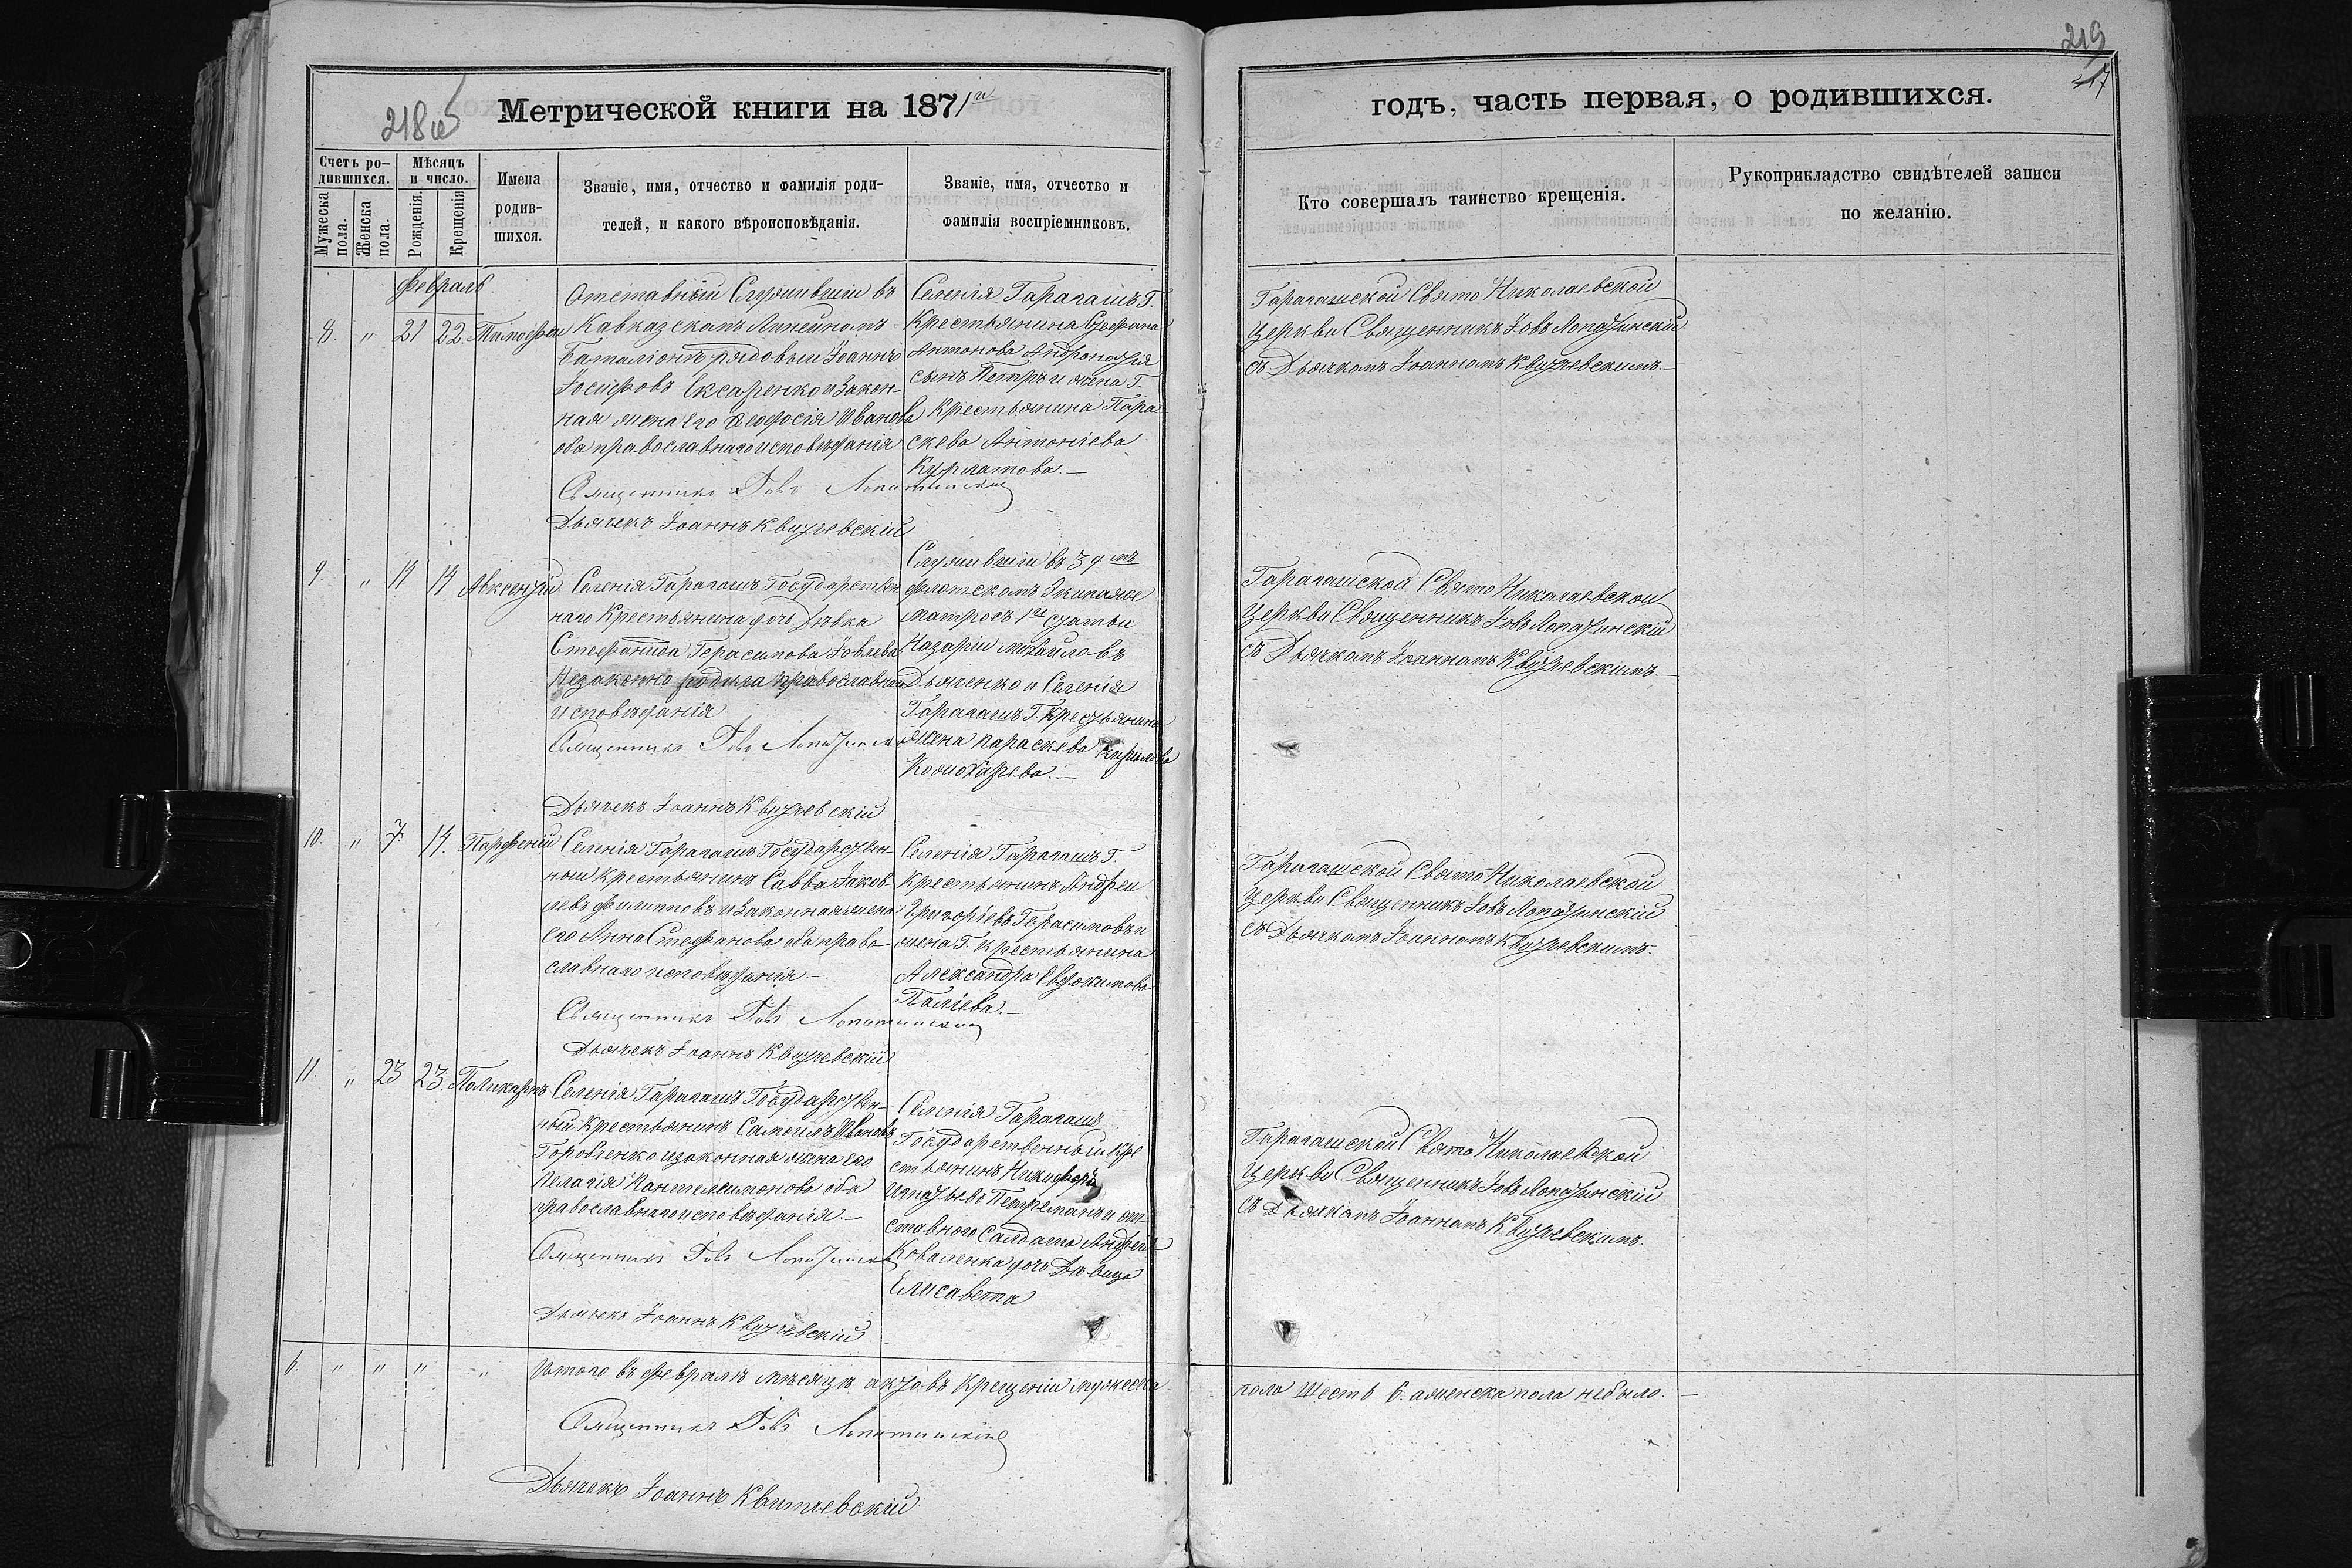 219
217
218 об
Метрической книги на 1871й
годъ, часть первая, о родившихся.
Счетъ ро-
дившихся.
Мѣсяцъ
и число.
Мужеска
пола.
Женска
пола.
Рожденія.
Крещенія
Имена
родив-
шихся.
Званіе, имя, отчество и фамилія роди-
телей, и какого вѣроисповѣданія.
Званіе, имя, отчество и
фамилія воспріемниковъ.
Кто совершалъ таинство крещенія.
Рукоприкладство свидѣтелей записи
по желанію.
Февраль
8. " 21 22. Тимофей
Отставный Служившій въ
Кавказскомъ Линейномъ
Баталіонѣ рядовый Іоаннъ
Іосифовъ и Закон-
ная жена его Феодосія Иванова
оба православнаго исповѣданія
Священникъ Іовъ Лопатинскій
Дьячекъ Іоаннъ Квитчевскій
Селенія Гарагашъ Г.
Крестьянина Стефана
Антонова
сынъ Петръ и жена Г.
Крестьянина Пара-
скева Антоніева
Курлатова.—
Гарагашской Свято Николаевской
Церкви Священникъ Іовъ Лопатинскій
съ Дьячкомъ Іоанномъ Квитчевскимъ.—
9. " 14 14 Авксентій
Селенія Гарагашъ Государствен-
наго Крестьянина дочь Дѣвка
Стефанида Герасимова Іовлева
Незаконно родила православнаго
исповѣданія
Священникъ Іовъ Лопатинскій
Дьячекъ Іоаннъ Квитчевскій
Служившій въ 39мъ
флотскомъ Экипаже
матросъ 1й статьи
Назарій Михайловъ
Дьяченко и Селенія
Гарагашъ Г. Крестьянина
жена Параскева Кирилова
Кожохарева.—
Гарагашской Свято Николаевской
Церкви Священникъ Іовъ Лопатинскій
съ Дьячкомъ Іоанномъ Квитчевскимъ.—
10. " 7 14. Парфеній
Селенія Гарагашъ Государствен-
ный крестьянинъ Савва Іаков-
левъ Филипповъ и Законная жена
его Анна Стефанова оба право-
славнаго исповѣданія.—
Священникъ Іовъ Лопатинскій
Дьячекъ Іоаннъ Квитчевскій
Селенія Гарагашъ Г.
Крестьянинъ Андрей
Григорьевъ Герасимовъ и
жена Г. Крестьянина
Александра Евдокимова
Паліева.—
Гарагашской Свято Николаевской
Церкви Священникъ Іовъ Лопатинскій
съ Дьячкомъ Іоанномъ Квитчевскимъ.
11. " 23 23. Поликарпъ
Селенія Гарагашъ Государствен-
ный Крестьянинъ Самоилъ Ивановъ
Горобченко и законная жена его
Пелагія Пантелеимонова оба
православнаго исповѣданія.—
Священникъ Іовъ Лопатинскій
Дьячекъ Іоаннъ Квитчевскій
Селенія Гарагашъ
Государственный Кре
стьянинъ Никифоръ
Игнатьевъ Петреманъ и от-
ставного Салдата Андрея
Коваленка дочь Дѣвица
Елисавета
Гарагашской Свято Николаевской
Церкви Священникъ Іовъ Лопатинскій
съ Дьячкомъ Іоанномъ Квитчевскимъ.
6. " " " "
Итого въ Февралѣ мѣсяцѣ актовъ Крещенія мужеска
пола Шесть 6. а женска пола небыло.—
Священникъ Іовъ Лопатинскій
Дьячекъ Іоаннъ Квитчевскій